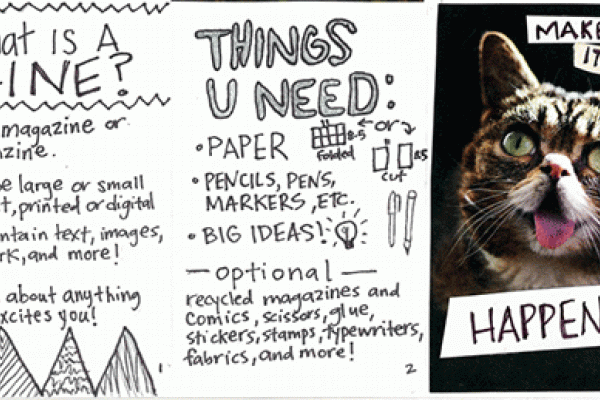 at IS A
INE?
magazine or
zine.
e large or small
t, printed or digital
ntain text, images,
rk, and more!
about anything
xcites you!
1
THINGS
U NEED:
• PAPER
8.5
folded
or
8.5
cut
• PENCILS, PENS,
MARKERS, ETC.
• BIG IDEAS!
— optional —
recycled magazines and
comics, scissors, glue,
stickers, stamps, typewriters,
fabrics, and more!
2
MAKE
IT
HAPPEN